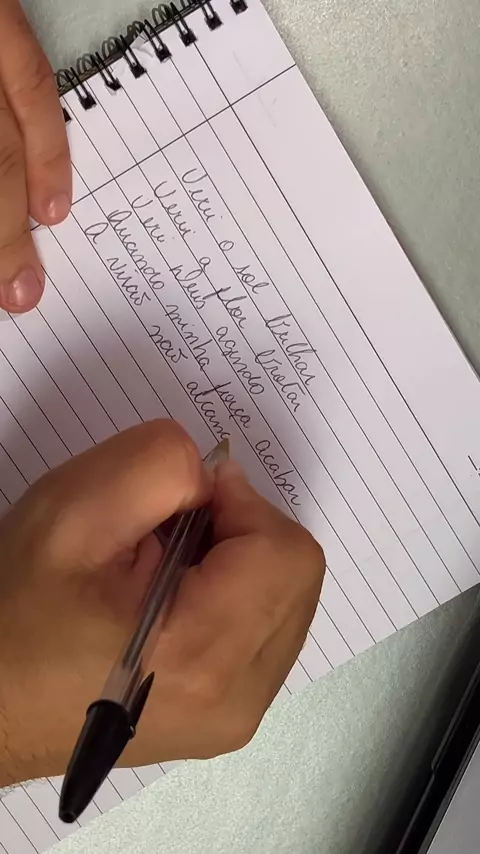 Verei o sol brilhar
Verei a flor brotar
Verei Deus agindo
Quando minha força acabar
A visão não alcanç